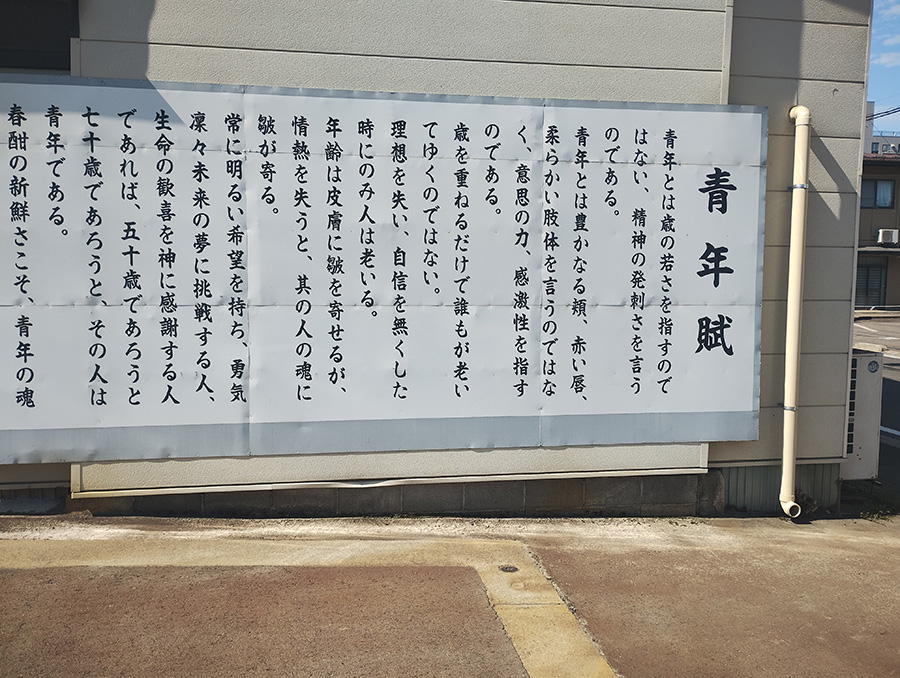 青年賦
青年とは歳の若さを指すので
はない、精神の発刺さを言う
のである。
青年とは豊かなる頬、赤い唇、
柔らかい肢体を言うのではな
く、意思の力、感激性を指す
のである。
歳を重ねるだけで誰もが老い
てゆくのではない。
理想を失い、自信を無くした
時にのみ人は老いる。
年齢は皮膚に皺を寄せるが、
情熱を失うと、其の人の魂に
皺が寄る。
常に明るい希望を持ち、勇気
凜々未来の夢に挑戦する人、
生命の歓喜を神に感謝する人
であれば、五十歳であろうと
七十歳であろうと、その人は
青年である。
春酣の新鮮さこそ、青年の魂